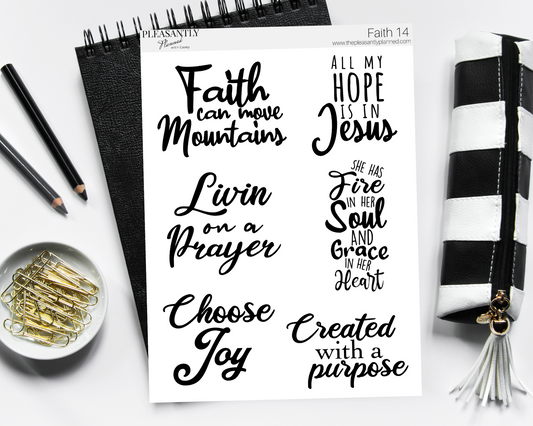 PLEASANTLY
Planned
Faith 14
www.thepleasantlyplanned.com
Faith
can move
Mountains
ALL MY
HOPE
IS IN
Jesus
Livin
on a
Prayer
SHE HAS
Fire
IN HER
Soul
AND
Grace
IN HER
Heart
Choose
Joy
Created
with a
purpose